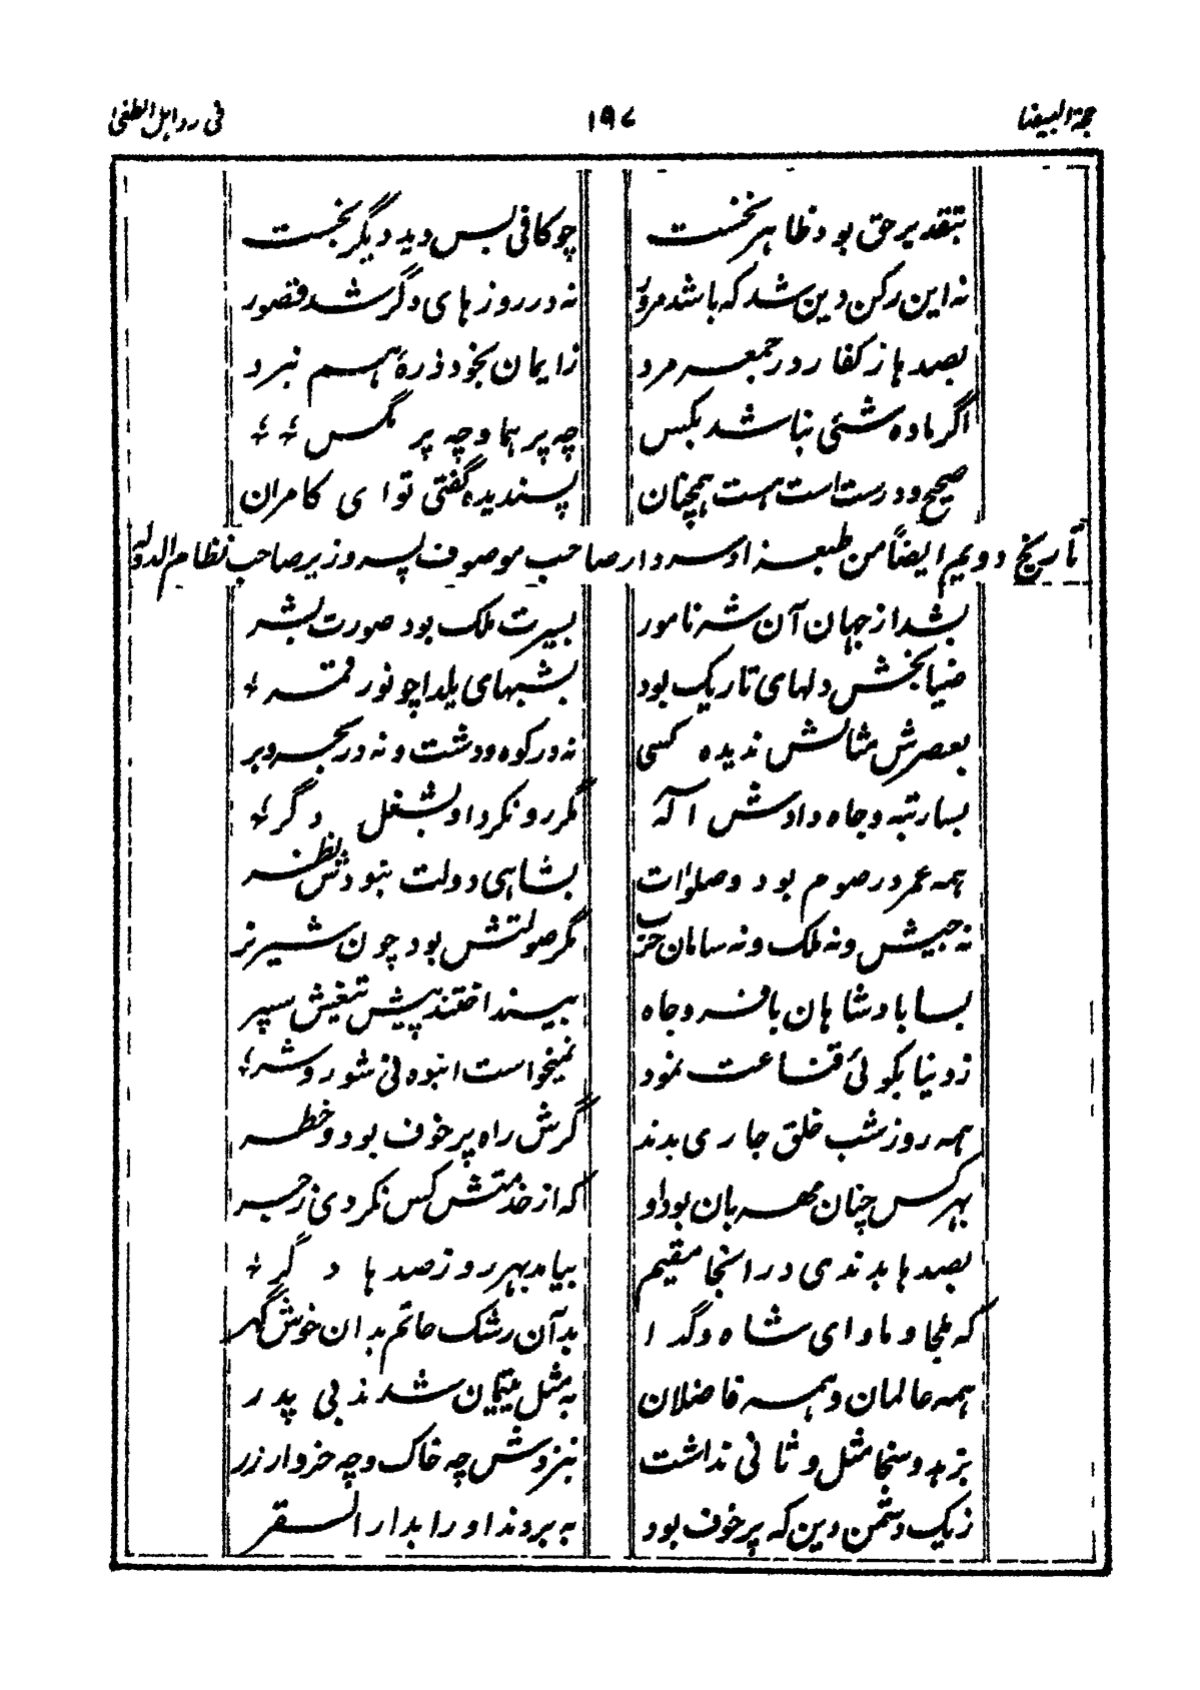 حجة البیضا ۱۹۷ فی
بتقدیر حق بود ظاهر نخست چو کافی بس دید دیگر بجست
نه این رکن دین شد که باشد مرو نه در روزهای دگر شد قصور
بصدها ز کفار روز جمعه مرد ز ایمان بخود ذرهٔ هم نبرد
اگر ماده شئی نباشد بکس چه پر هما و چه پر مگس
صحیح و درست است هست همچنان پسندیده گفتی تو ای کامران
تاریخ دویم ایضاً من طبعزاد سردار صاحب موصوف پسر وزیر صاحب نظام الدوله
بشد از جهان آن شه نامور بسیرت ملک بود صورت بشر
ضیا بخش دلهای تاریک بود بشبهای یلدا چو نور قمر
بعصرش مثالش ندیده کسی نه در کوه و دشت و نه در بحر و بر
بسا رتبه و جاه دادش آله مگر رو نکرد او بشغل دگر
همه عمر در صوم بود و صلوات بشاهی دولت نبودش نظر
نه جیش و نه ملک و نه سامان حرب مگر صولتش بود چون شیر نر
بسا بادشاهان با فر و جاه بینداختند پیش تیغش سپر
ز دنیا بکوئی قناعت نمود نمیخواست انبوه فی شور و شر
همه روز شب خلق جاری بدند گرش راه پر خوف بود و خطر
بهر کس چنان مهربان بود او که از خدمتش کس نکردی زجر
بصدها بدندی در انجا مقیم بیامد بهر روز صدها دگر
که ملجا و ماوای شاه و گدا بد آن رشک حاتم بد ان خوش گهر
همه عالمان و همه فاضلان به مثل یتیمان شدند بی پدر
بزهد و سخا مثل و ثانی نداشت بنزدش چه خاک و چه خروار زر
ز یک دشمن دین که پر خوف بود به بردند او را بدار السقر